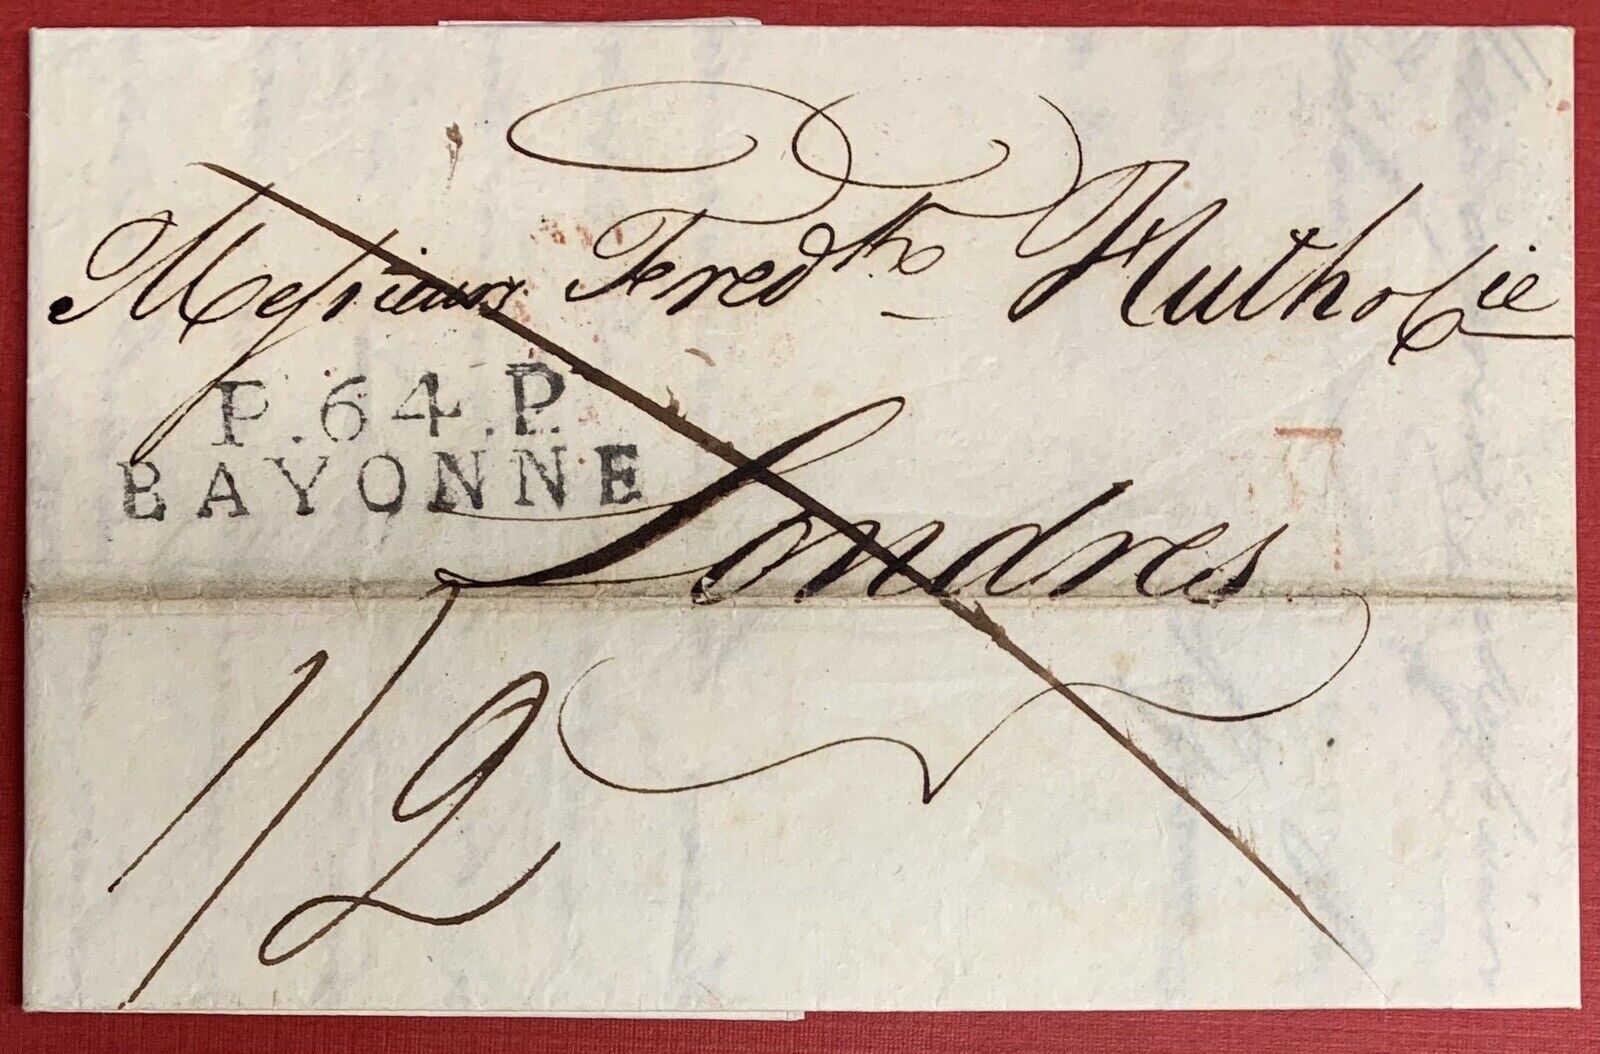 Messieurs Fred.k Huth & Cie
P.64.P.
BAYONNE
Londres
1/2